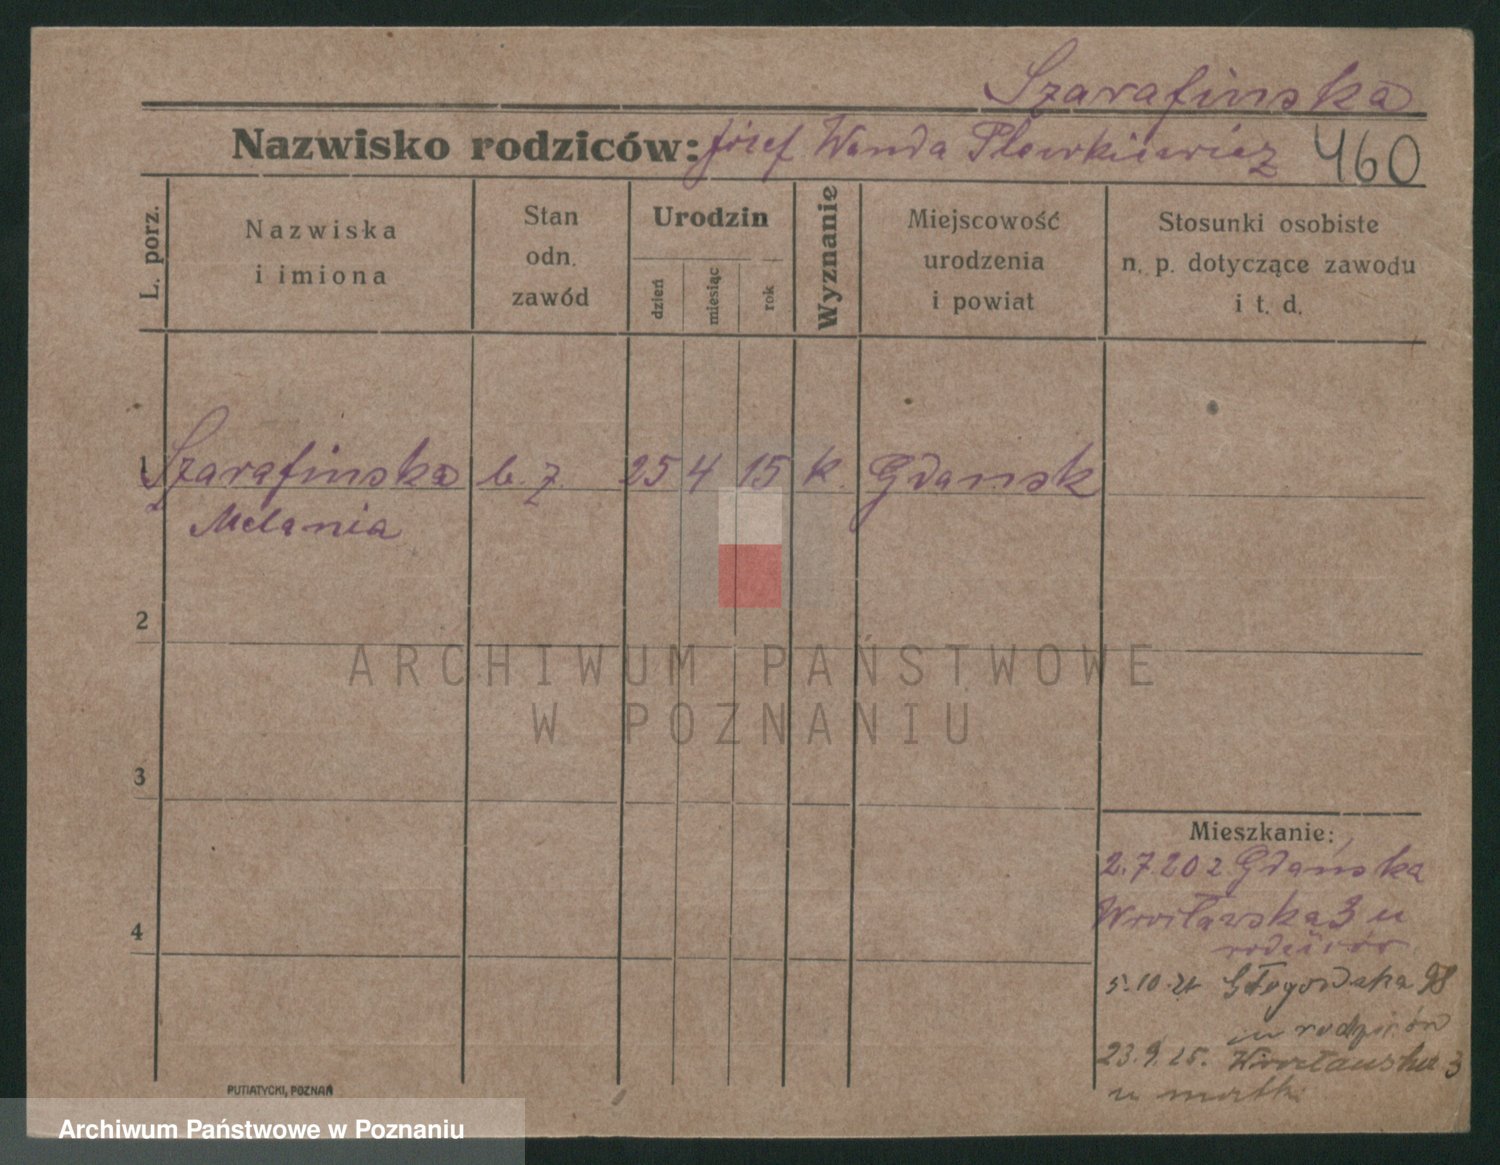 Szarafinska
Nazwisko rodziców: Józef Wanda Plewkiewicz 460
L. porz.
Nazwiska
i imiona
Stan
odn.
zawód
Urodzin
dzień
miesiąc
rok
Wyznanie
Miejscowość
urodzenia
i powiat
Stosunki osobiste
n. p. dotyczące zawodu
i t. d.
1 Szarafinska b. z. 25 4 15 k. Gdansk
Melania
2
ARCHIWUM PAŃSTWOWE
W POZNANIU
3
Mieszkanie:
2.7.20 z Gdańska
Wrocławska 3 u
rodziców
4
5.10.21 Głogowska 98
u rodziców
23.9.25. Wrocławska 3
u matki
PUTIATYCKI, POZNAŃ
Archiwum Państwowe w Poznaniu